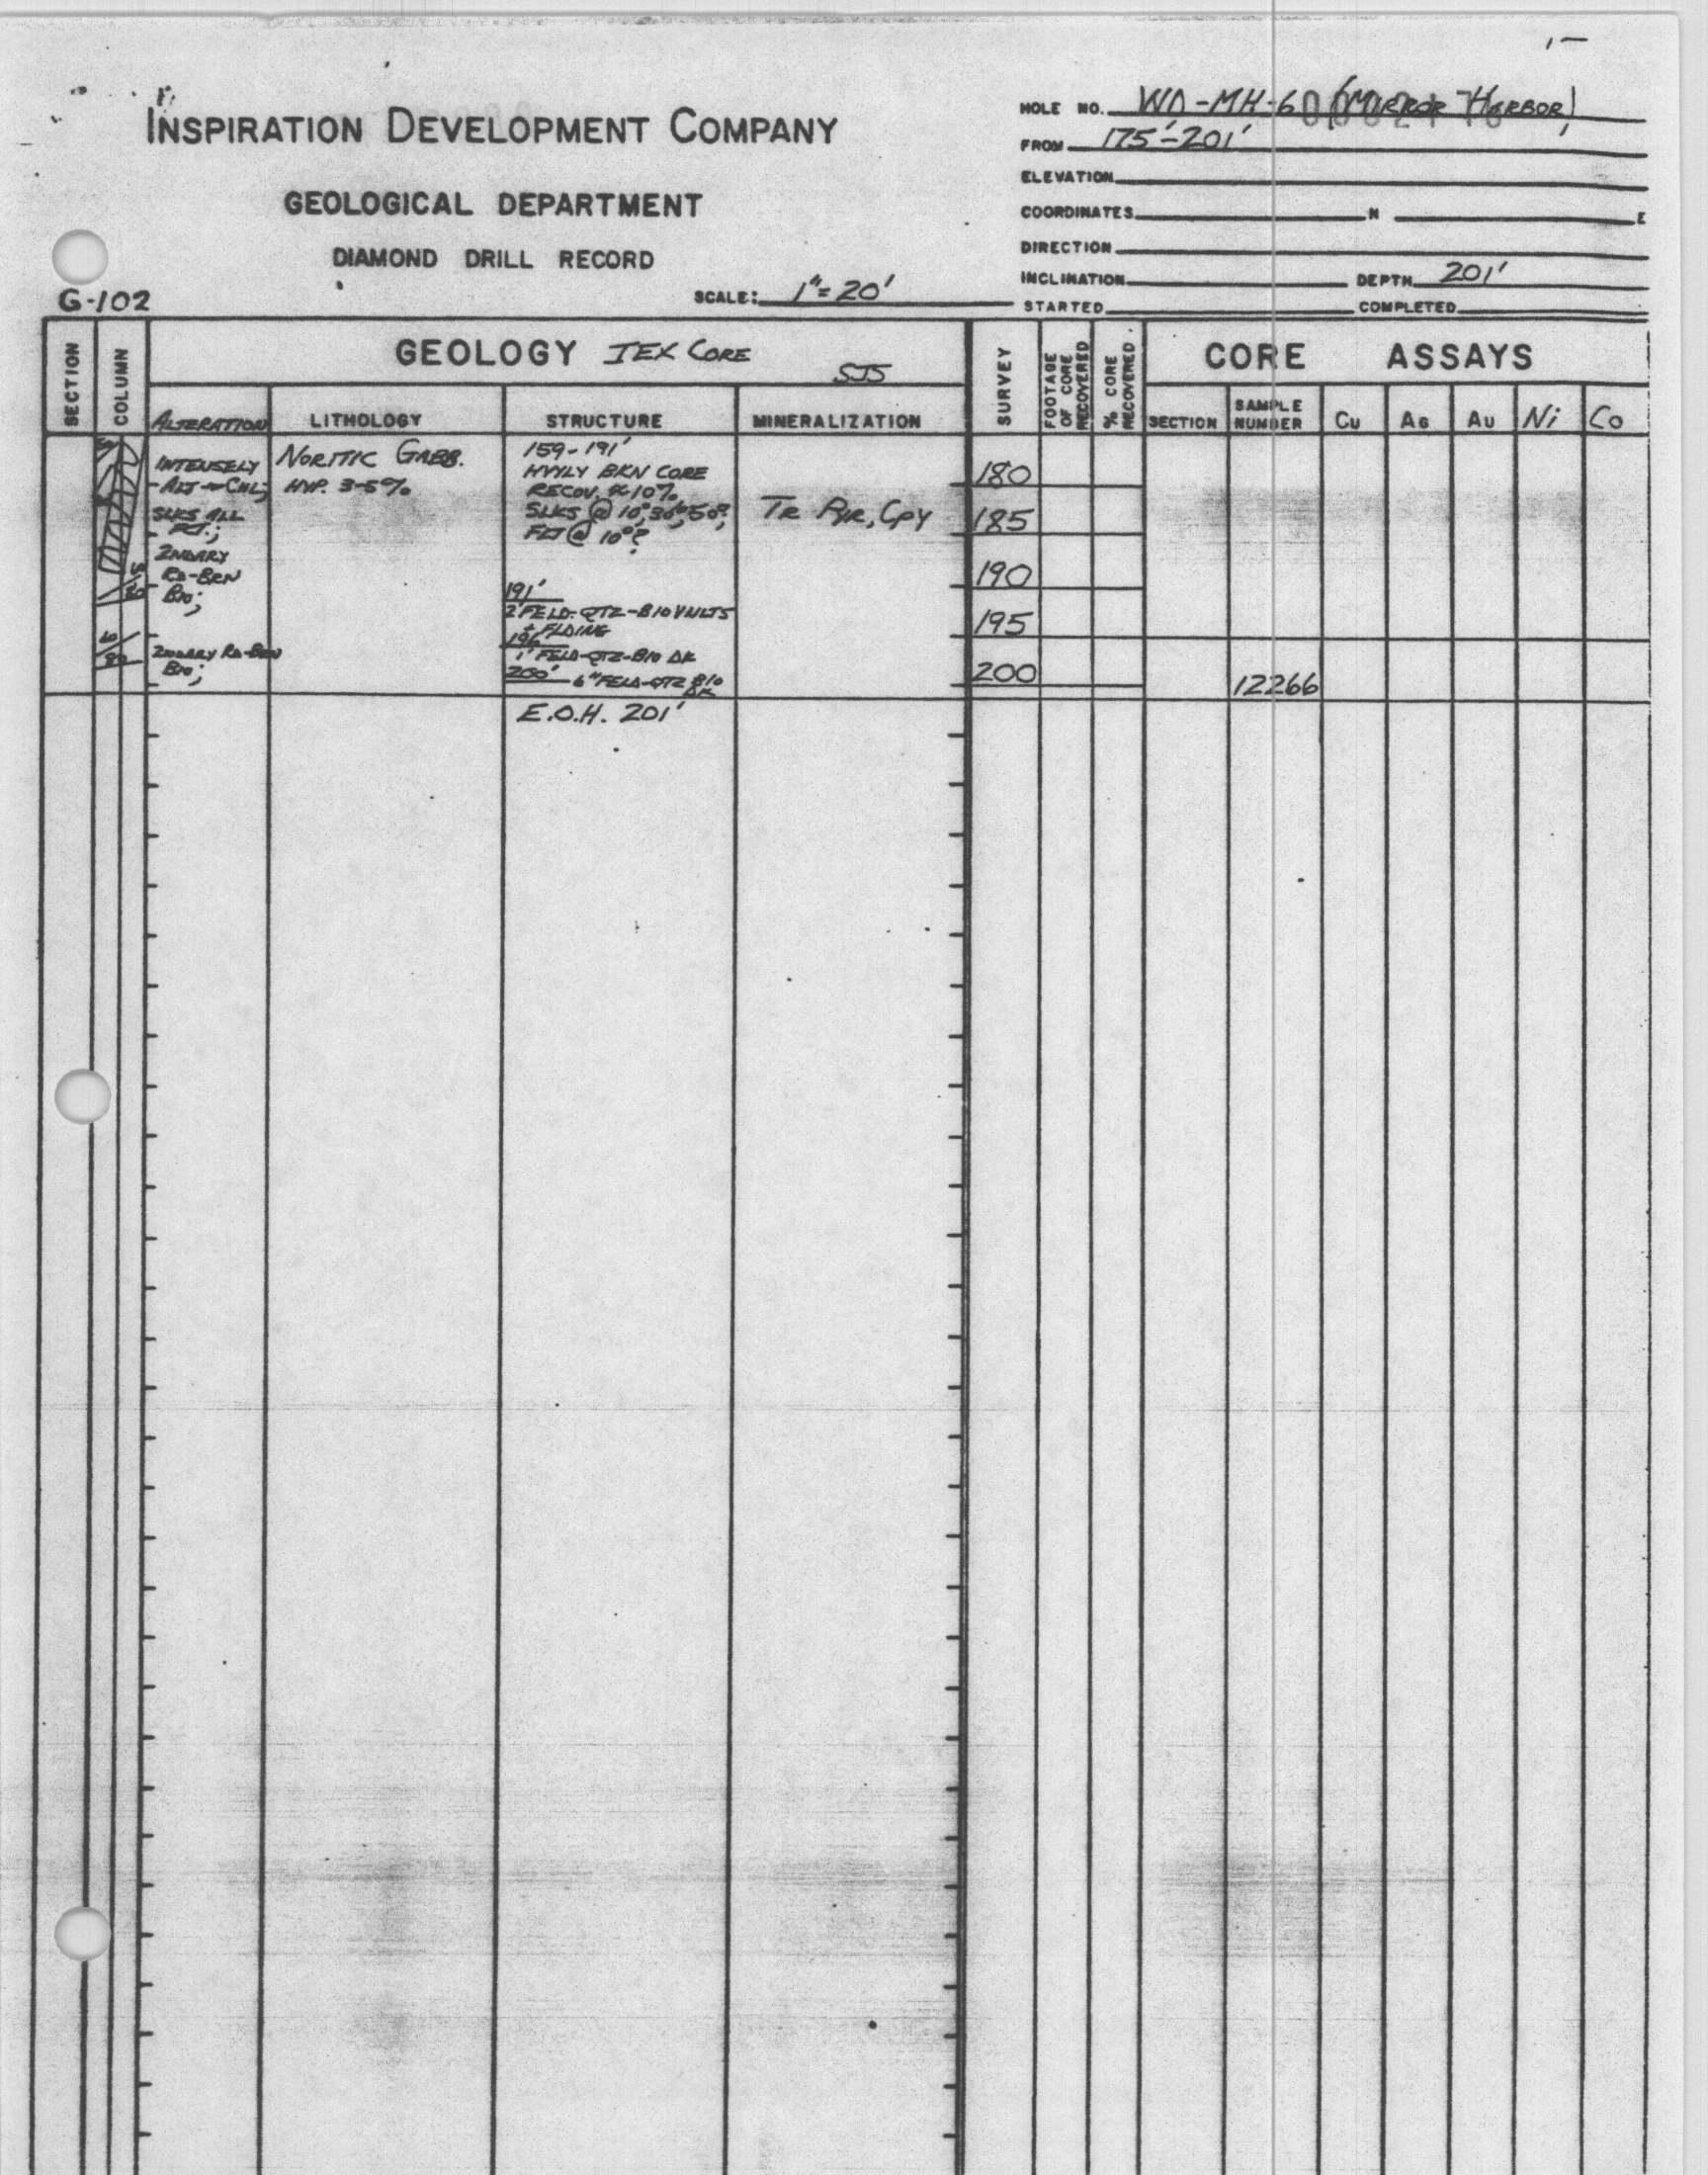 INSPIRATION DEVELOPMENT COMPANY
GEOLOGICAL DEPARTMENT
DIAMOND DRILL RECORD
G-102
SCALE: 1"= 20'
HOLE NO. WD-MH-6 (MIRROR HARBOR)
FROM 175'-201'
ELEVATION
COORDINATES N E
DIRECTION
INCLINATION DEPTH 201'
STARTED COMPLETED
SECTION
COLUMN
GEOLOGY IEX CORE
SJS
ALTERATION LITHOLOGY STRUCTURE MINERALIZATION
SURVEY
FOOTAGE OF CORE RECOVERED
% CORE RECOVERED
CORE ASSAYS
SECTION SAMPLE NUMBER Cu AG AU Ni Co
INTENSELY
ALT → CHL;
SLKS ALL
2NDARY
RD-BRN
BIO;
2NDARY RD-BRN
BIO;
NORITIC GABB.
HYP. 3-5%
159-191'
HVYLY BKN CORE
RECOV. ≈ 10%
SLKS @ 10°, 30°, 50°,
FLT @ 10°?
191'
2' FELD-QTZ-BIO VNLTS
+ FLDING
196'
1' FELD-QTZ-BIO DK
200' 6" FELD-QTZ BIO
DK
E.O.H. 201'
TR PYR, CPY
180
185
190
195
200
12266